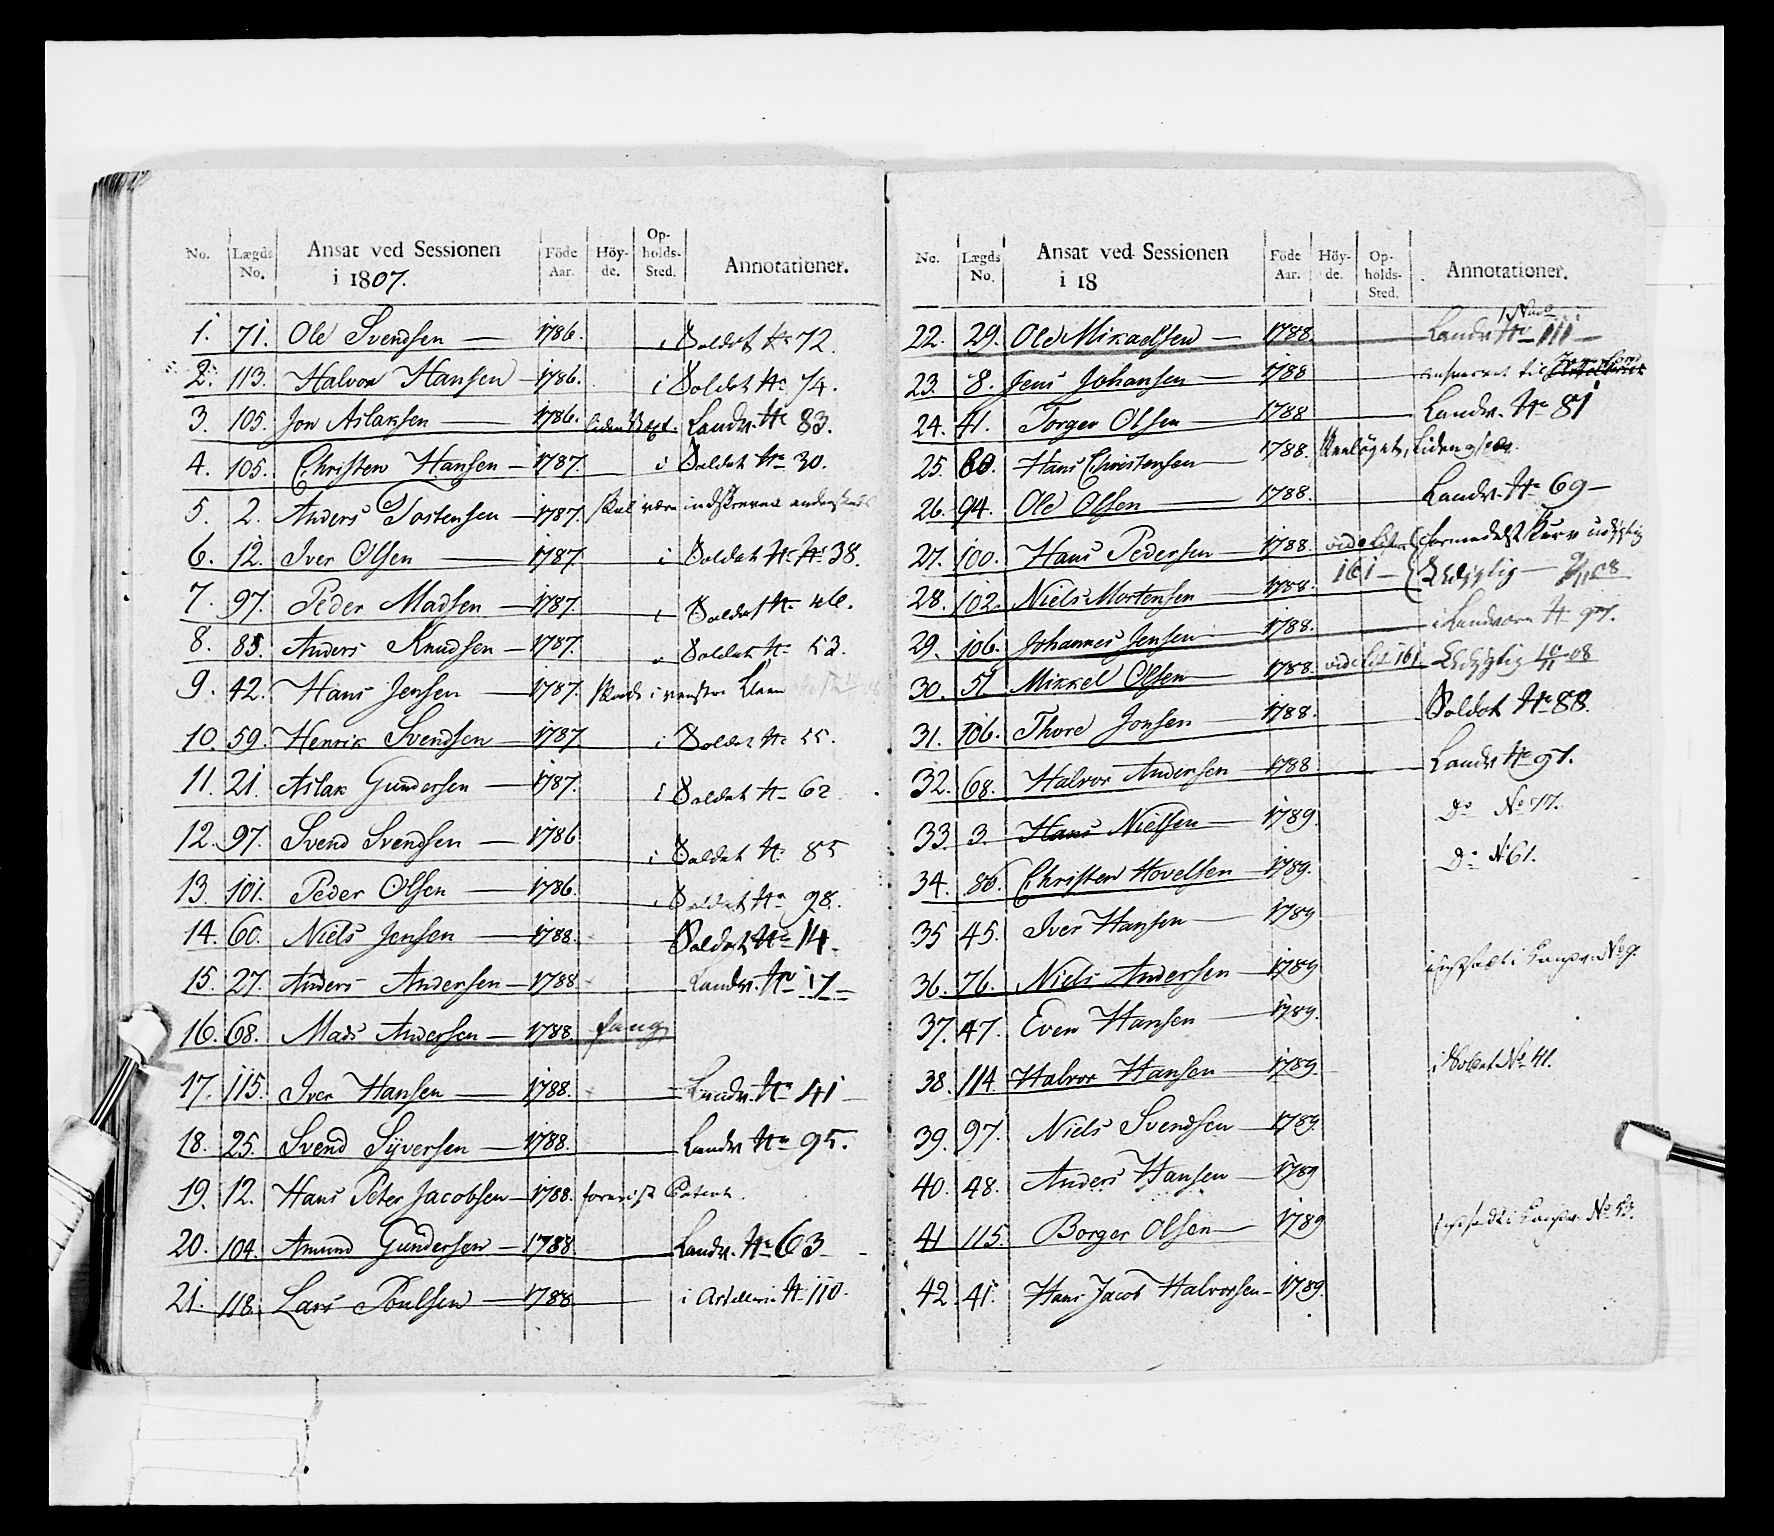 No. Lægds No. Ansat ved Sessionen i 1807. Föde Aar. Höy-de. Op-holds-Sted. Annotationer.
1. 71. Ole Svendsen — 1786. i Soldat No 72.
2. 113. Halvor Hansen — 1786. i Soldat No 74.
3. 105. Jon Aslaksen — 1786. liden Vext. Landv. No 83.
4. 105. Christen Hansen — 1787. i Soldat No 30.
5. 2. Anders Tostensen — 1787. skal være indskreven
6. 12. Iver Olsen — 1787. i Soldat No No 38.
7. 97. Peder Madsen — 1787. i Soldat No 46.
8. 85. Anders Knudsen — 1787. Soldat No 53.
9. 42. Hans Jensen — 1787. Skade i venstre
10. 59. Henrik Svendsen — 1787. i Soldat No 55.
11. 21. Aslak Gundersen — 1787. i Soldat No 62
12. 97. Svend Svendsen — 1786. i Soldat No 85
13. 101. Peder Olsen — 1786. i Soldat No 98.
14. 60. Niels Jensen — 1788. Soldat No 14.
15. 27. Anders Andersen — 1788. Landv. No 17 —
16. 68. Mads Andersen — 1788. fang
17. 115. Iver Hansen — 1788. Landv. No 41 —
18. 25. Svend Syversen — 1788. Landv No 95.
19. 12. Hans Peter Jacobsen — 1788. forevist Patent.
20. 104. Amund Gundersen — 1788. Landv. No 63 —
21. 118. Lars Poulsen — 1788. i Artillerie No 110.
No. Lægds No. Ansat ved Sessionen i 18 Föde Aar. Höy-de. Op-holds-Sted. Annotationer.
22. 29. Ole Mikaelsen — 1788. Landv No 111 —
23. 8. Jens Johansen — 1788 til
24. 41. Torger Olsen — 1788 Landv. No 81
25. 80. Hans Christensen — 1788.
26. 94. Ole Olsen — 1788. Landv. No 69 —
27. 100. Hans Pedersen — 1788. vide List formedelst Kurv udygtig
28. 102. Niels Mortensen — 1788. 161 — Udygtig — 9/11 08
29. 106. Johannes Jensen — 1788. i Landværn No 97.
30. 57 Mikkel Olsen — 1788. vide List 161 Udygtig 10/11 08
31. 106. Thore Jonsen — 1788. Soldat No 88.
32. 68. Halvor Andersen — 1788 Landv No 91.
33. 3. Hans Nielsen — 1789. Do No 77.
34. 86. Christen Hovelsen — 1789. Do No 61.
35 45. Iver Hansen — 1789
36. 76. Niels Andersen — 1789 No 9.
37. 47. Even Hansen — 1789.
38. 114. Halvor Hansen — 1789. i Soldat No 41.
39. 97. Niels Svendsen — 1789.
40. 48. Anders Hansen — 1789
41 115. Borger Olsen — 1789 No 53.
42. 41. Hans Jacob Halvorsen — 1789.